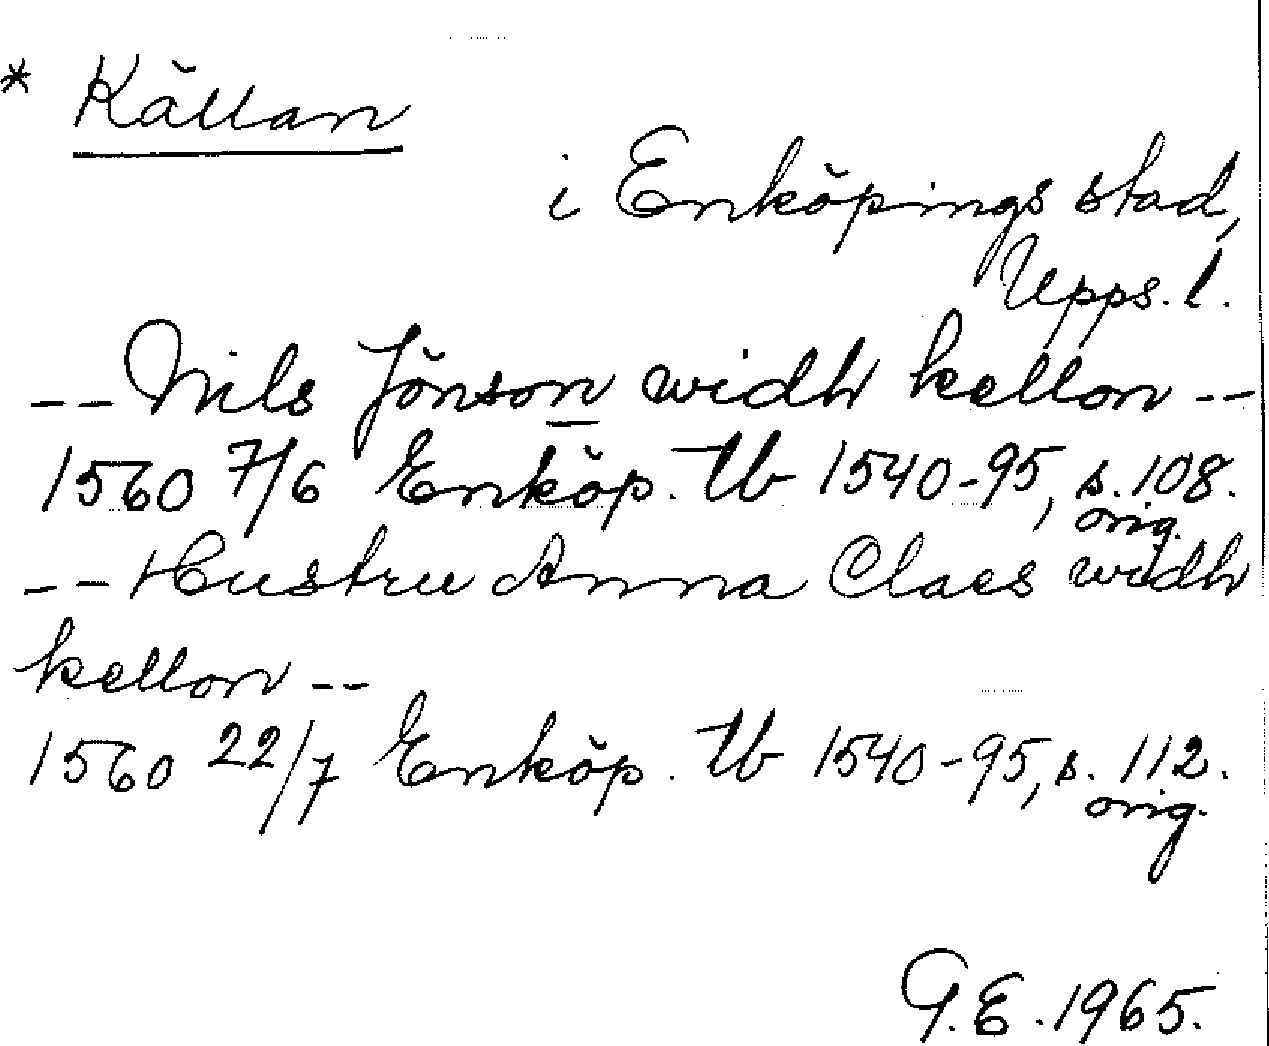 * Källan
i Enköpings stad,
Upps. l.
-- Nils Jönson widh kellon --
1560 7/6 Enköp. Tb 1540-95, s. 108.
orig.
-- Hustru Anna Claes widh
kellon --
1560 22/7 Enköp. Tb 1540-95, s. 112.
orig.
G.E. 1965.